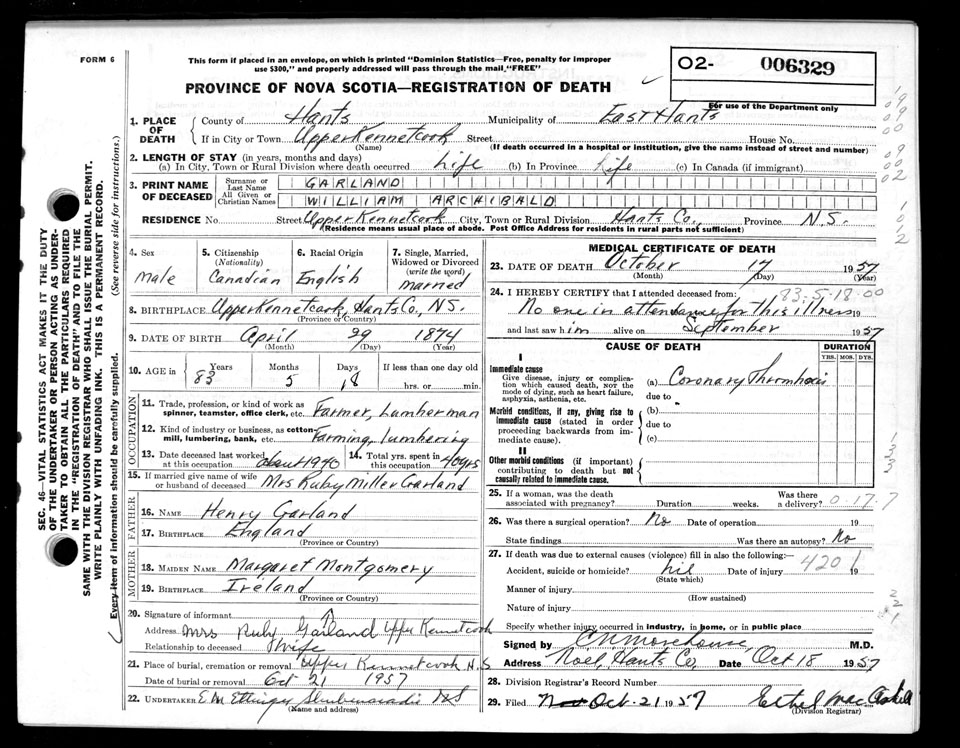 FORM 6
This form if placed in an envelope, on which is printed "Dominion Statistics—Free, penalty for improper
use $300," and properly addressed will pass through the mail "FREE"
O2- 006329
For use of the Department only
PROVINCE OF NOVA SCOTIA—REGISTRATION OF DEATH
SEC. 46—VITAL STATISTICS ACT MAKES IT THE DUTY
OF THE UNDERTAKER OR PERSON ACTING AS UNDER-
TAKER TO OBTAIN ALL THE PARTICULARS REQUIRED
IN THE "REGISTRATION OF DEATH" AND TO FILE THE
SAME WITH THE DIVISION REGISTRAR WHO SHALL ISSUE THE BURIAL PERMIT.
WRITE PLAINLY WITH UNFADING INK. THIS IS A PERMANENT RECORD.
Every item of information should be carefully supplied. (See reverse side for instructions.)
1. PLACE OF DEATH
County of Hants Municipality of East Hants
If in City or Town Upper Kennetcook Street House No.
(Name) (If death occurred in a hospital or institution, give the name instead of street and number)
2. LENGTH OF STAY (in years, months and days)
(a) In City, Town or Rural Division where death occurred Life (b) In Province Life (c) In Canada (if immigrant)
3. PRINT NAME OF DECEASED
Surname or Last Name GARLAND
All Given or Christian Names WILLIAM ARCHIBALD
RESIDENCE No. Street Upper Kennetcook City, Town or Rural Division Hants Co., Province N.S.
(Residence means usual place of abode. Post Office Address for residents in rural parts not sufficient)
4. Sex Male
5. Citizenship (Nationality) Canadian
6. Racial Origin English
7. Single, Married, Widowed or Divorced (write the word) married
8. BIRTHPLACE Upper Kennetcook, Hants Co., N.S.
(Province or Country)
9. DATE OF BIRTH April 29 1874
(Month) (Day) (Year)
10. AGE in 83 Years 5 Months 18 Days If less than one day old
hrs. or min.
OCCUPATION
11. Trade, profession, or kind of work as
spinner, teamster, office clerk, etc. Farmer, Lumberman
12. Kind of industry or business, as cotton-
mill, lumbering, bank, etc. Farming, Lumbering
13. Date deceased last worked at this occupation about 1940
14. Total yrs. spent in this occupation 40 yrs
15. If married give name of wife
or husband of deceased Mrs Ruby Miller Garland
FATHER
16. NAME Henry Garland
17. BIRTHPLACE England
(Province or Country)
MOTHER
18. MAIDEN NAME Margaret Montgomery
19. BIRTHPLACE Ireland
(Province or Country)
20. Signature of informant
Address Mrs Ruby Garland Upper Kennetcook
Relationship to deceased Wife
21. Place of burial, cremation or removal Upper Kennetcook N.S
Date of burial or removal Oct 21 1957
22. UNDERTAKER E M Ettinger Shubenacadie NS
(Name and address)
MEDICAL CERTIFICATE OF DEATH
23. DATE OF DEATH October 17 1957
(Month) (Day) (Year)
24. I HEREBY CERTIFY that I attended deceased from:
83.5.18.00
No one in attendance for this illness 19
and last saw him alive on September 1957
CAUSE OF DEATH DURATION
YRS. MOS. DYS.
I
Immediate cause
Give disease, injury or complica-
tion which caused death, NOT the
mode of dying, such as heart failure,
asphyxia, asthenia, etc.
(a) Coronary Thrombosis
due to
Morbid conditions, if any, giving rise to
immediate cause (stated in order
proceeding backwards from im-
mediate cause).
(b)
due to
(c)
II
Other morbid conditions (if important)
contributing to death but not
causally related to immediate cause.
25. If a woman, was the death
associated with pregnancy? Duration weeks. Was there a delivery?
0-17.7
26. Was there a surgical operation? No Date of operation 19
State findings Was there an autopsy? No
27. If death was due to external causes (violence) fill in also the following:—
Accident, suicide or homicide? nil Date of injury 19
420.1
(State which)
Manner of injury
(How sustained)
Nature of injury
Specify whether injury occurred in industry, in home, or in public place
Signed by C N Morehouse, M.D.
Address Noel, Hants Co, Date Oct 18 1957
28. Division Registrar's Record Number
29. Filed Nov Oct. 21 1957 Ethel MacAskill
(Division Registrar)